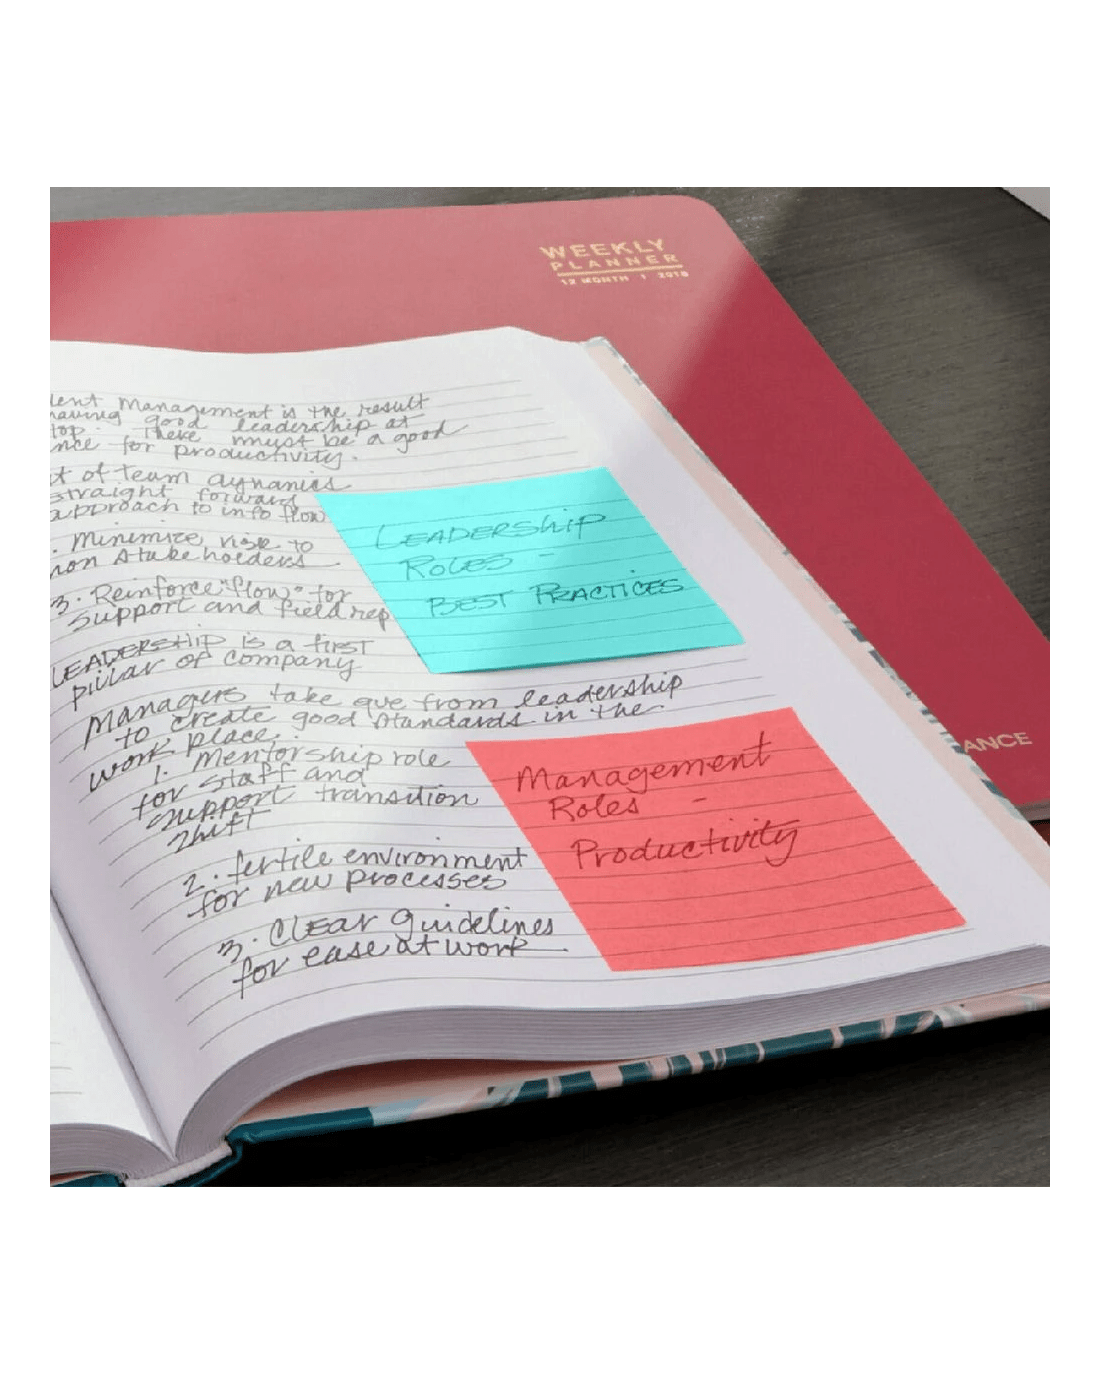 WEEKLY
PLANNER
12 MONTH | 2018
Management is the result
having good leadership at
top. There must be a good
for productivity.
of team dynamics
straight forward
approach to info flow
. Minimize risk to
non stakeholders
3. Reinforce "flow" for
support and field rep
LEADERSHIP is a first
pillar of company
Managers take que from leadership
to create good standards in the
work place.
1. Mentorship role
for staff and
support transition
shift
2. fertile environment
for new processes
3. Clear guidelines
for ease at work
LEADERSHIP
ROLES -
BEST PRACTICES
Management
Roles -
Productivity
ANCE